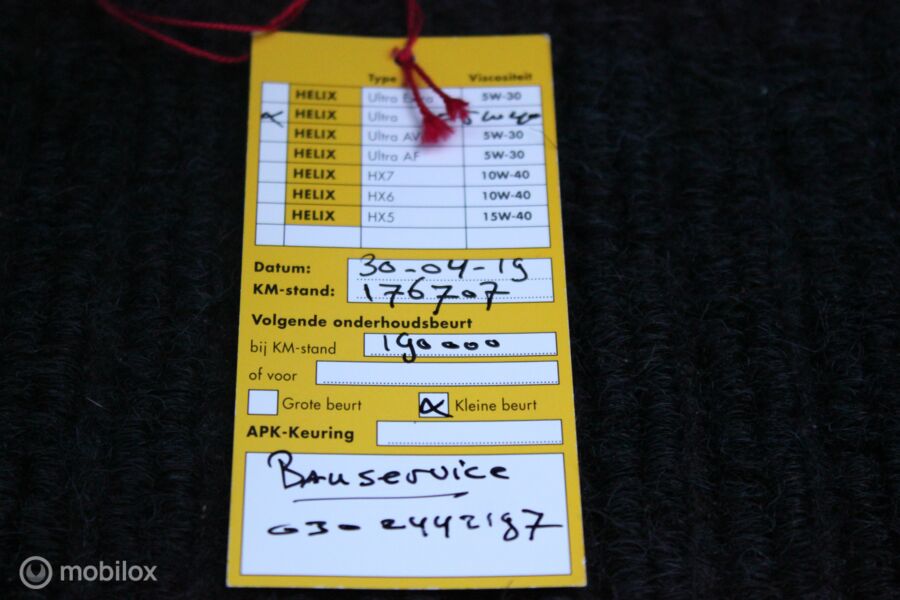 Type Viscositeit
HELIX Ultra Extra 5W-30
HELIX Ultra 5W40
HELIX Ultra AV 5W-30
HELIX Ultra AF 5W-30
HELIX HX7 10W-40
HELIX HX6 10W-40
HELIX HX5 15W-40
Datum: 30-04-19
KM-stand: 176707
Volgende onderhoudsbeurt
bij KM-stand 190000
of voor
Grote beurt Kleine beurt
APK-Keuring
Bauservice
030-2442197
mobilox